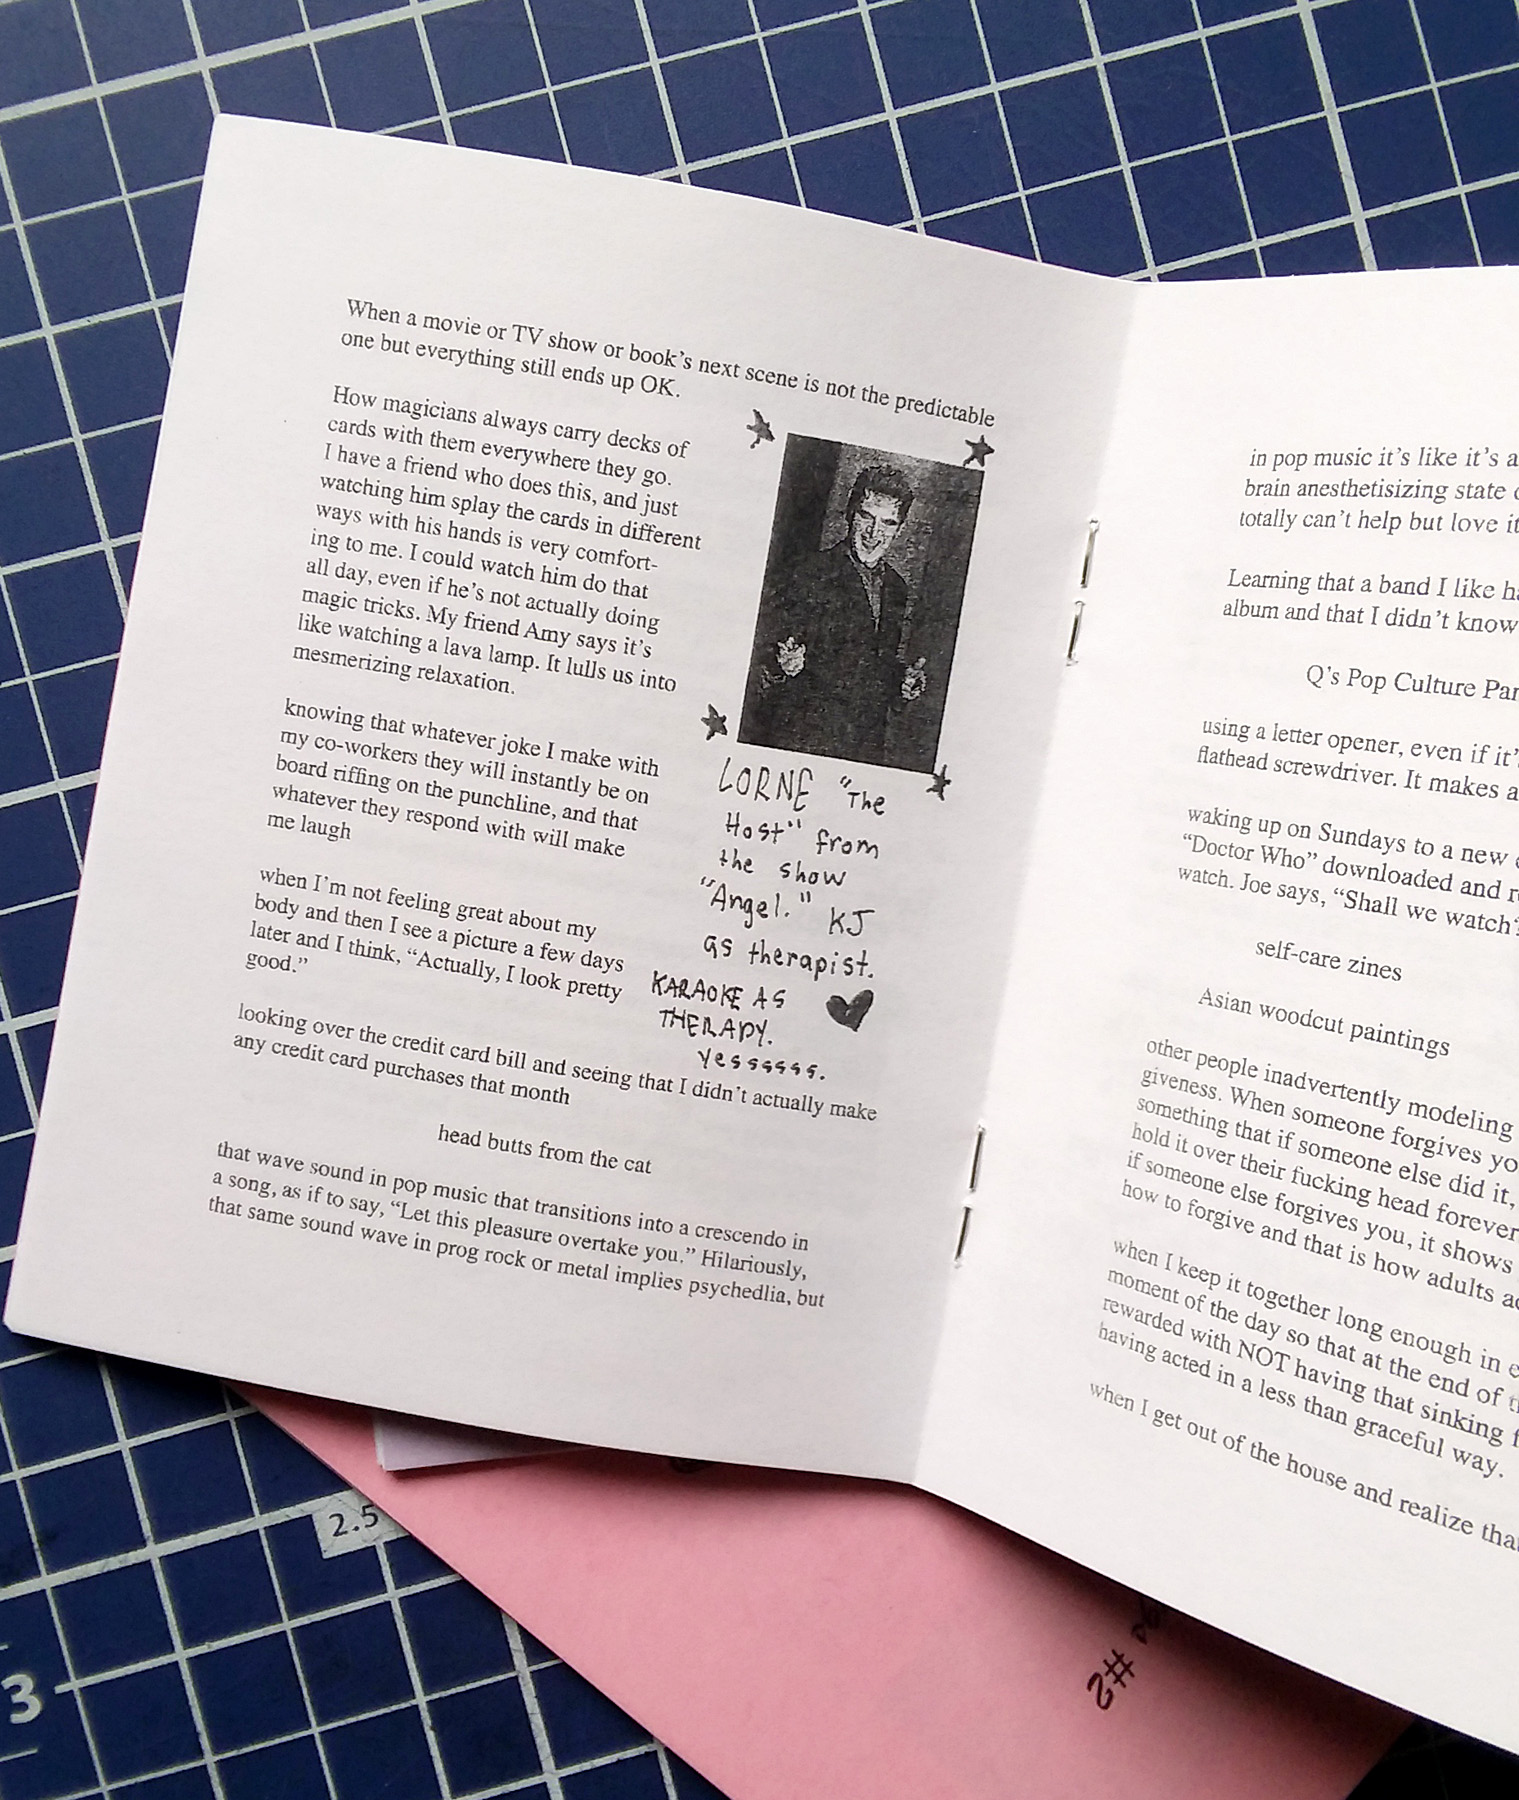 When a movie or TV show or book’s next scene is not the predictable
one but everything still ends up OK.
How magicians always carry decks of
cards with them everywhere they go.
I have a friend who does this, and just
watching him splay the cards in different
ways with his hands is very comfort-
ing to me. I could watch him do that
all day, even if he’s not actually doing
magic tricks. My friend Amy says it’s
like watching a lava lamp. It lulls us into
mesmerizing relaxation.
knowing that whatever joke I make with
my co-workers they will instantly be on
board riffing on the punchline, and that
whatever they respond with will make
me laugh
when I’m not feeling great about my
body and then I see a picture a few days
later and I think, “Actually, I look pretty
good.”
LORNE "The
Host" from
the show
"Angel." KJ
as therapist.
KARAOKE AS
THERAPY.
yesssssss.
looking over the credit card bill and seeing that I didn’t actually make
any credit card purchases that month
head butts from the cat
that wave sound in pop music that transitions into a crescendo in
a song, as if to say, “Let this pleasure overtake you.” Hilariously,
that same sound wave in prog rock or metal implies psychedlia, but
in pop music it’s like it’s a
brain anesthetisizing state
totally can’t help but love it
Learning that a band I like
album and that I didn’t know
Q’s Pop Culture
using a letter opener, even if it’s
flathead screwdriver. It makes a
waking up on Sundays to a new
“Doctor Who” downloaded and
watch. Joe says, “Shall we watch
self-care zines
Asian woodcut paintings
other people inadvertently modeling
giveness. When someone forgives
something that if someone else did it,
hold it over their fucking head forever
if someone else forgives you, it shows
how to forgive and that is how adults
when I keep it together long enough in
moment of the day so that at the end of
rewarded with NOT having that sinking
having acted in a less than graceful way.
when I get out of the house and realize
2.5
3
#2